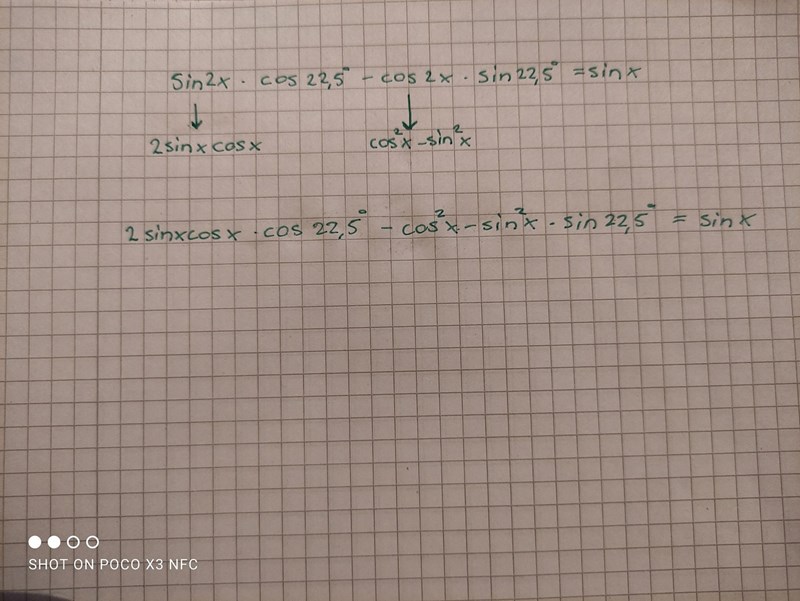 sin2x · cos 22,5° - cos 2x · sin 22,5° = sin x
2 sin x cos x cos²x - sin²x
2 sinxcos x · cos 22,5° - cos²x - sin²x · sin 22,5° = sin x
SHOT ON POCO X3 NFC